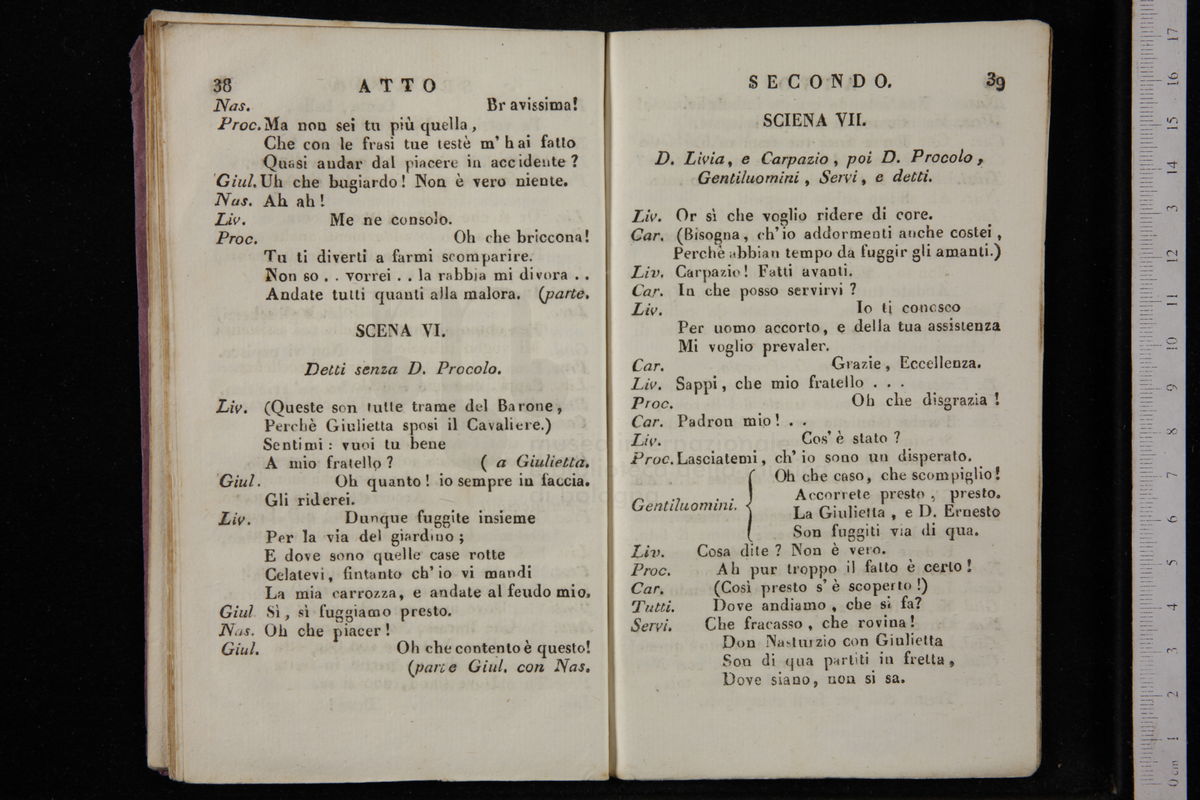 38 ATTO
Nas. Bravissima!
Proc. Ma non sei tu più quella,
Che con le frasi tue testè m' hai fatto
Quasi andar dal piacere in accidente?
Giul. Uh che bugiardo! Non è vero niente.
Nas. Ah ah!
Liv. Me ne consolo.
Proc. Oh che briccona!
Tu ti diverti a farmi scomparire.
Non so . . vorrei . . la rabbia mi divora . .
Andate tutti quanti alla malora. (parte.
SCENA VI.
Detti senza D. Procolo.
Liv. (Queste son tutte trame del Barone,
Perchè Giulietta sposi il Cavaliere.)
Sentimi: vuoi tu bene
A mio fratello? ( a Giulietta.
Giul. Oh quanto! io sempre in faccia.
Gli riderei.
Liv. Dunque fuggite insieme
Per la via del giardino;
E dove sono quelle case rotte
Celatevi, fintanto ch' io vi mandi
La mia carrozza, e andate al feudo mio.
Giul Sì, sì fuggiamo presto.
Nas. Oh che piacer!
Giul. Oh che contento è questo!
(parte Giul. con Nas.
SECONDO. 39
SCIENA VII.
D. Livia, e Carpazio, poi D. Procolo,
Gentiluomini, Servi, e detti.
Liv. Or sì che voglio ridere di core.
Car. (Bisogna, ch' io addormenti anche costei,
Perchè abbian tempo da fuggir gli amanti.)
Liv. Carpazio! Fatti avanti.
Car. In che posso servirvi?
Liv. Io ti conosco
Per uomo accorto, e della tua assistenza
Mi voglio prevaler.
Car. Grazie, Eccellenza.
Liv. Sappi, che mio fratello . . .
Proc. Oh che disgrazia!
Car. Padron mio! . .
Liv. Cos' è stato?
Proc. Lasciatemi, ch' io sono un disperato.
Oh che caso, che scompiglio!
Accorrete presto, presto.
Gentiluomini. La Giulietta, e D. Ernesto
Son fuggiti via di qua.
Liv. Cosa dite? Non è vero.
Proc. Ah pur troppo il fatto è certo!
Car. (Così presto s' è scoperto!)
Tutti. Dove andiamo, che si fa?
Servi. Che fracasso, che rovina!
Don Nasturzio con Giulietta
Son di qua partiti in fretta,
Dove siano, non si sa.
museo internazionale
di bologna
0 cm 1 2 3 4 5 6 7 8 9 10 11 12 13 14 15 16 17